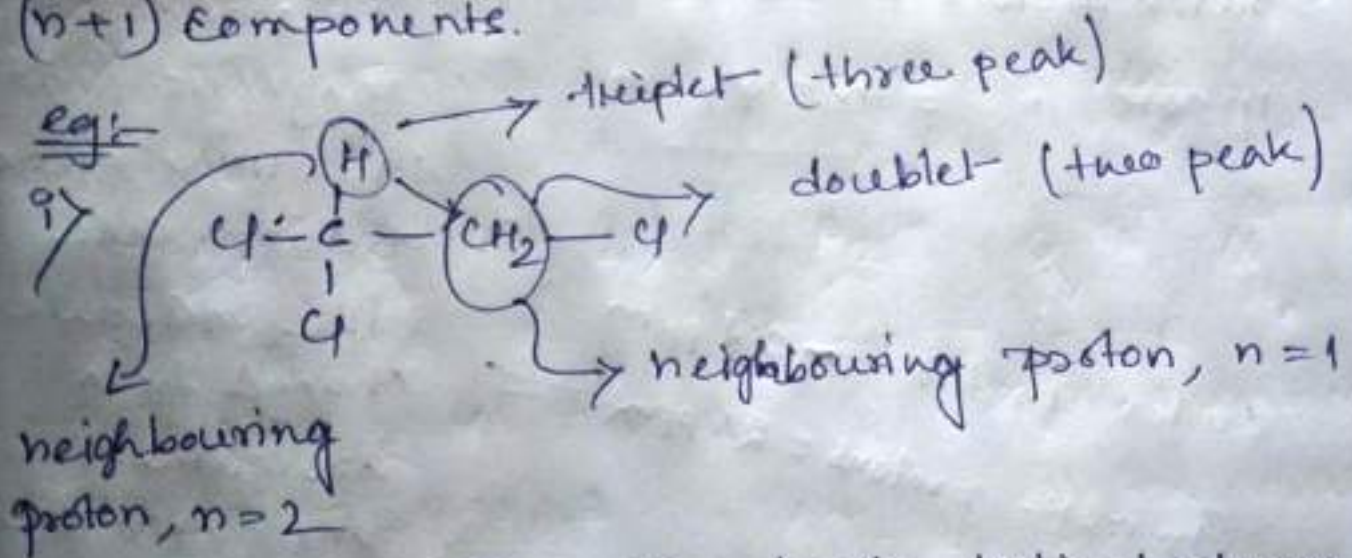 (n+1) components.
eg:-
i> H → triplet (three peak)
Cl - C - CH2 - Cl → doublet (two peak)
Cl
→ neighbouring proton, n=1
neighbouring
proton, n=2